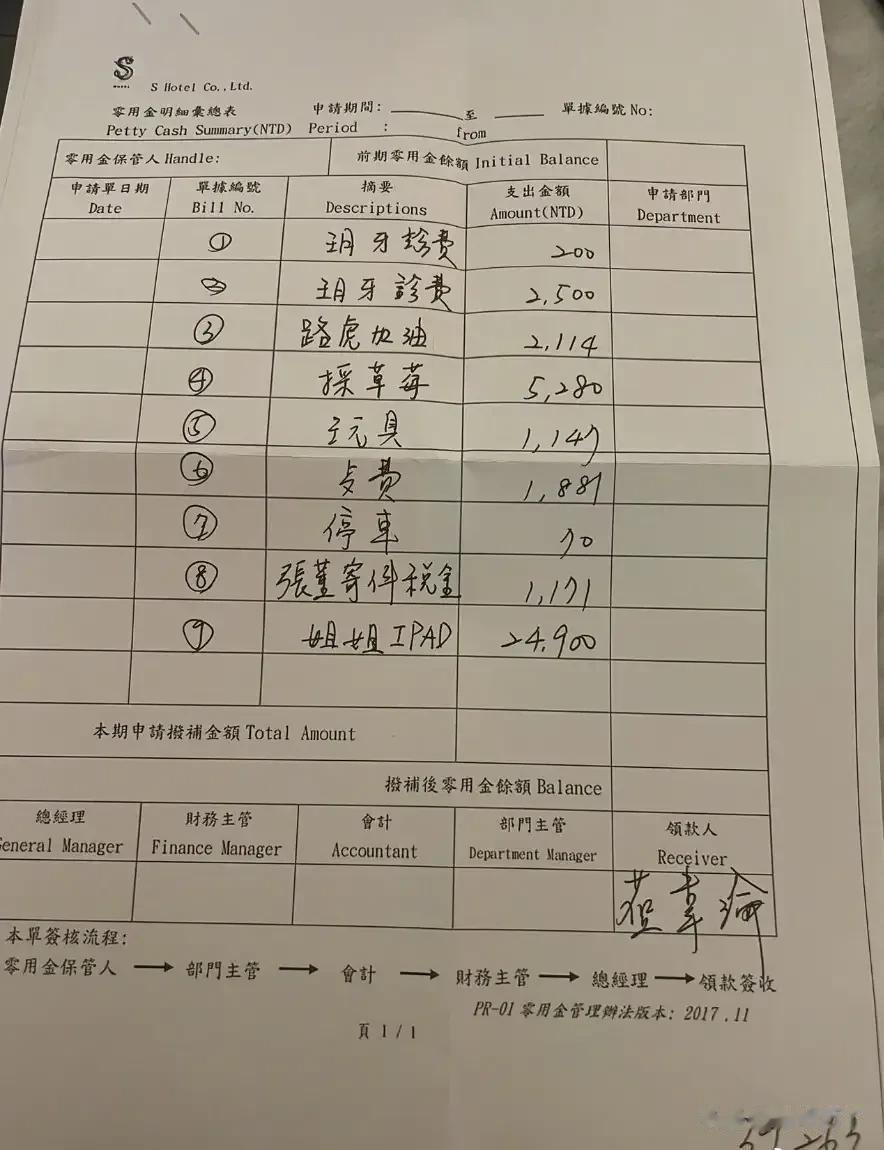 S
S Hotel Co.,Ltd.
零用金明細彙總表 申請期間: 至 單據編號 No:
Petty Cash Summary(NTD) Period : from
零用金保管人 Handle: 前期零用金餘額 Initial Balance
申請單日期 單據編號 摘要 支出金額 申請部門
Date Bill No. Descriptions Amount(NTD) Department
① 玥牙診費 200
② 玥牙診費 2,500
③ 路虎加油 2,114
④ 採草莓 5,280
⑤ 玩具 1,147
⑥ 費 1,881
⑦ 停車 70
⑧ 張董寄件稅金 1,171
⑨ 姐姐IPAD 24,900
本期申請撥補金額 Total Amount
撥補後零用金餘額 Balance
總經理 財務主管 會計 部門主管 領款人
General Manager Finance Manager Accountant Department Manager Receiver
本單簽核流程:
零用金保管人 → 部門主管 → 會計 → 財務主管 → 總經理 → 領款簽收
PR-01 零用金管理辦法版本: 2017.11
頁 1/1